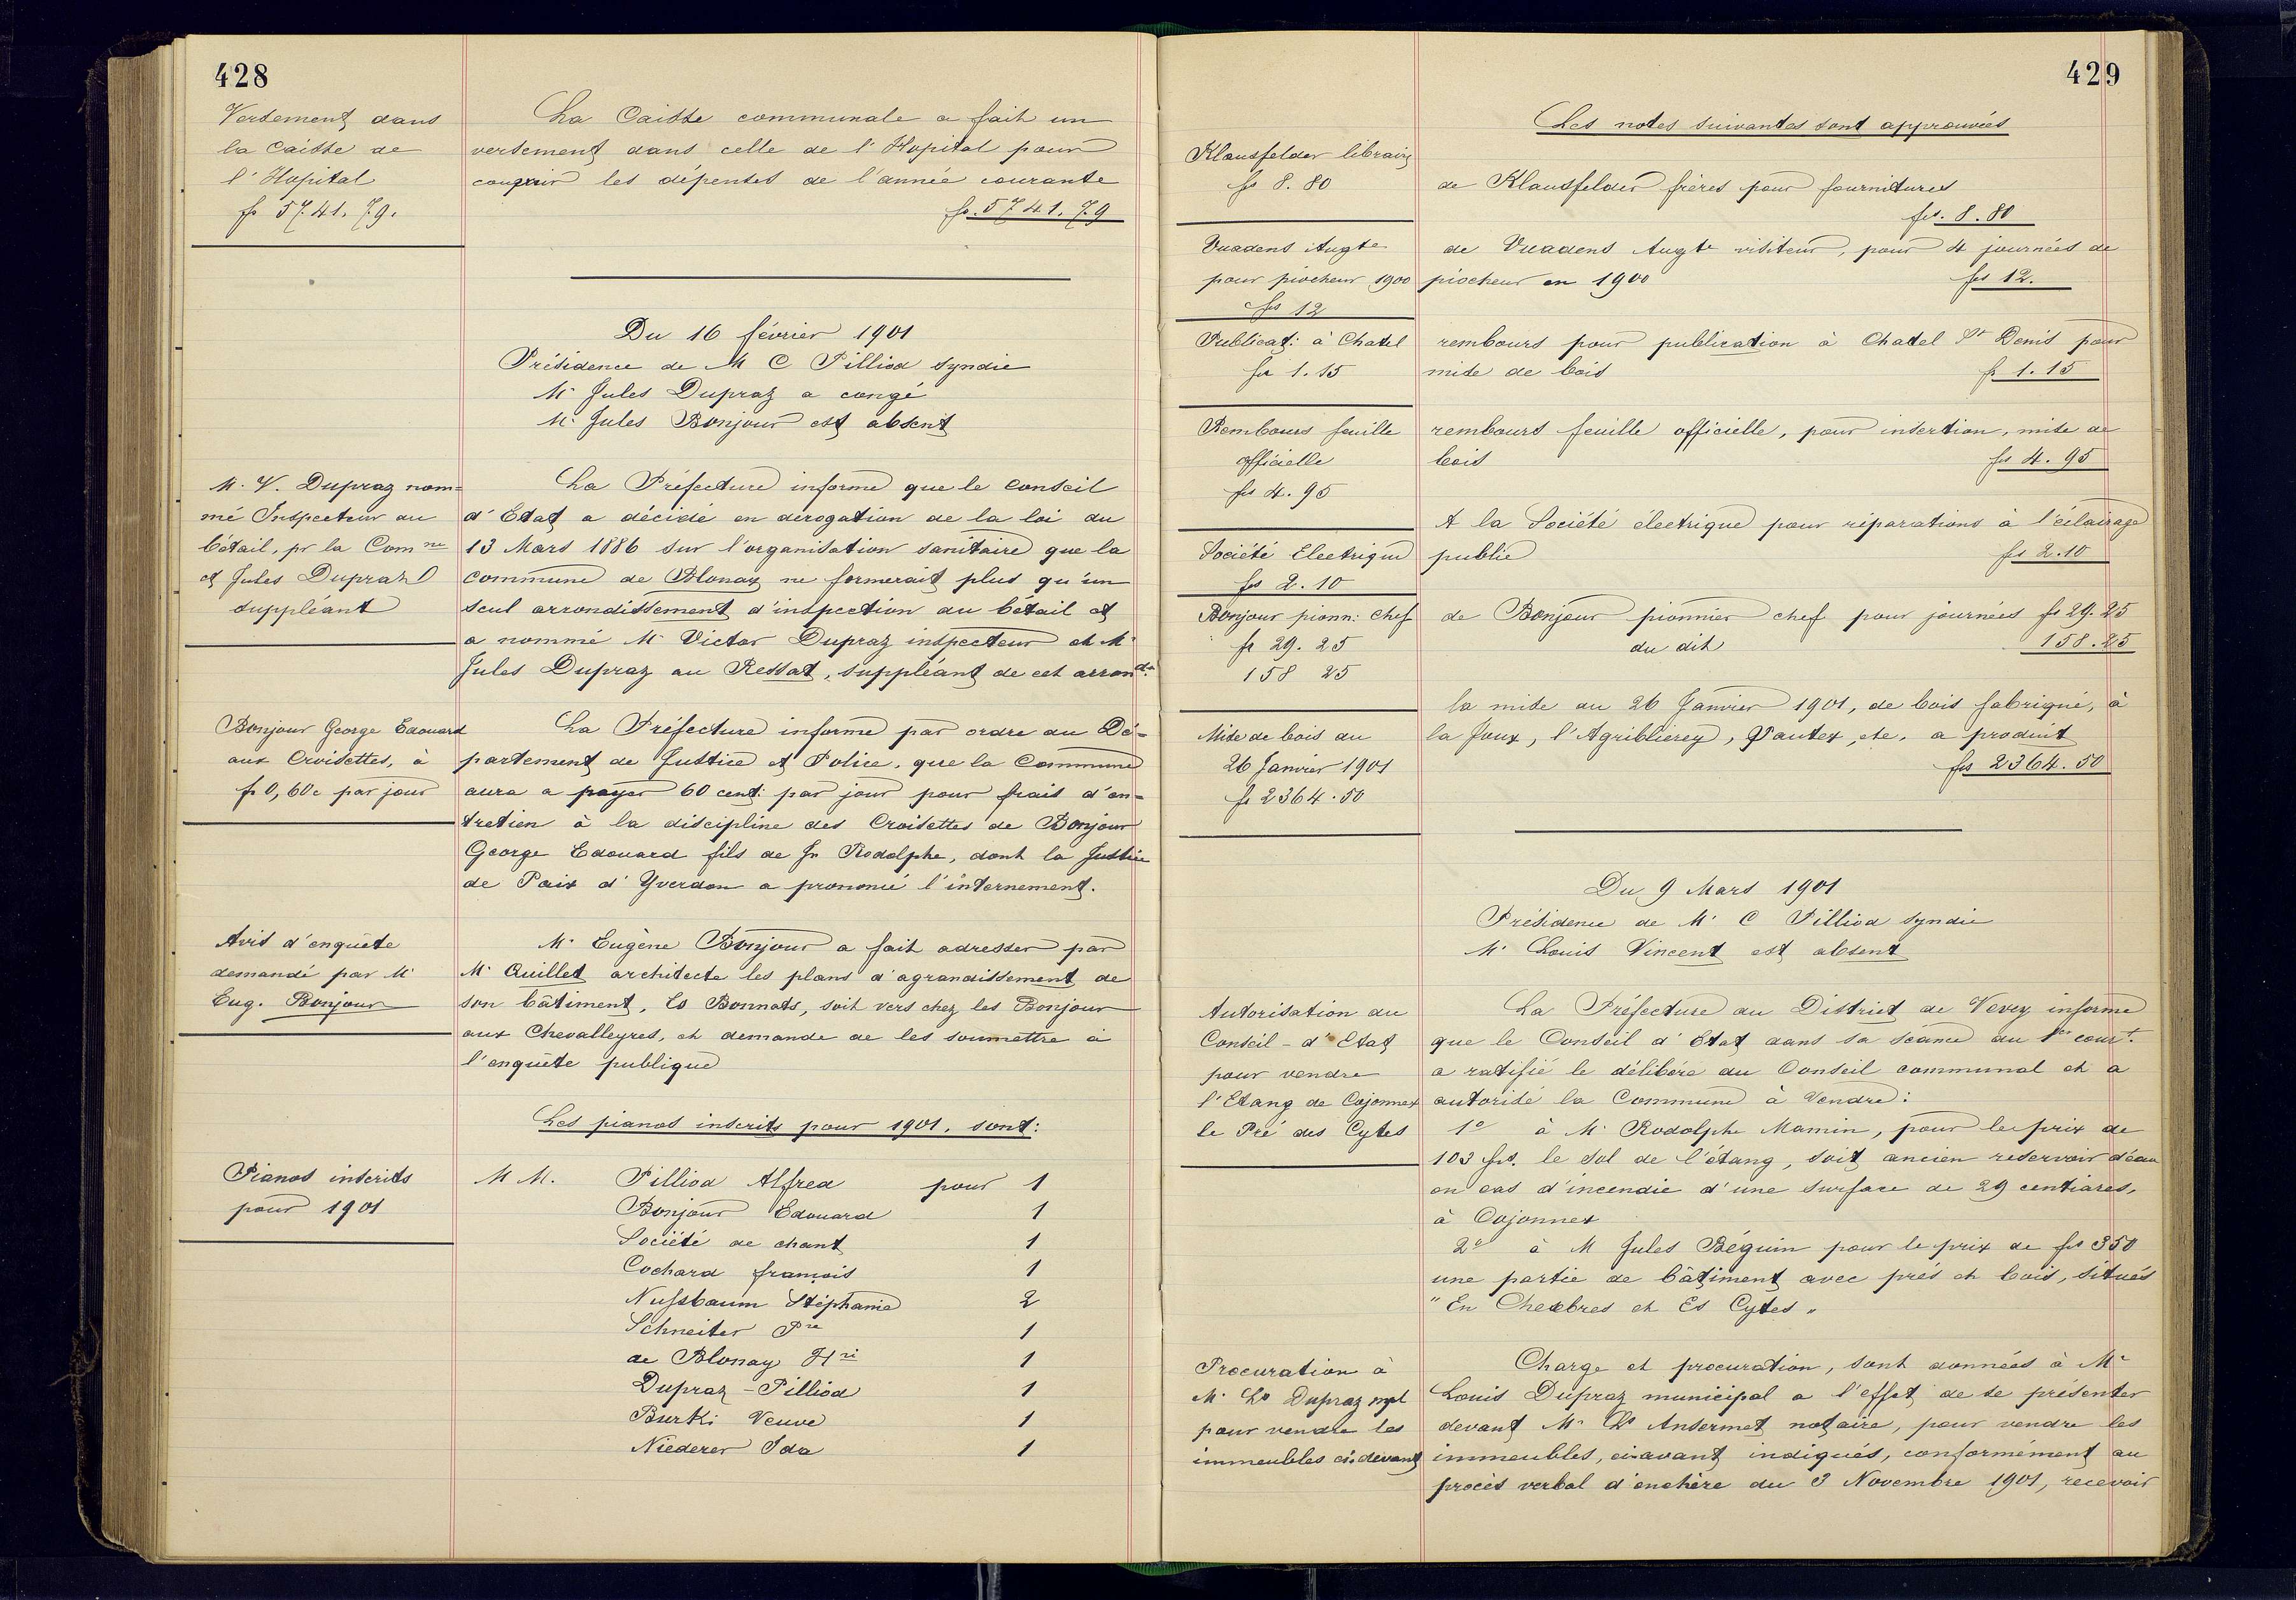 428
Versement dans
la Caisse de
l'Hopital
fr 5741.79.
La Caisse communale a fait un
versement dans celle de l'Hopital pour
couvrir les dépenses de l'année courante
fr. 5741.79
Du 16 février 1901
Présidence de M C Pilliod syndic
Mr Jules Dupraz a congé
Mr Jules Bonjour est absent
M. V. Dupraz nom=
mé Inspecteur du
bétail, pr la Comne
et Jules Dupraz
suppléant
La Préfecture informe que le Conseil
d'Etat a décidé en dérogation de la loi du
13 Mars 1886 sur l'organisation sanitaire que la
commune de Blonay ne formerait plus qu'un
seul arrondissement d'inspection du bétail et
a nommé Mr Victor Dupraz inspecteur et Mr
Jules Dupraz au Ressat, suppléant de cet arrondt.
Bonjour George Edouard
aux Croisettes, à
fr 0,60c par jour
La Préfecture informe par ordre du Dé=
partement de Justice et Police, que la Commune
aura a payer 60 cent: par jour pour frais d'en=
tretien à la discipline des Croisettes de Bonjour
George Edouard fils de Jn Rodolphe, dont la Justice
de Paix d'Yverdon a prononcé l'internement.
Avis d'enquête
demandé par Mr
Eug. Bonjour
Mr Eugène Bonjour a fait adresser par
Mr Quillet architecte les plans d'agrandissement de
son bâtiment, Es Bonnats, soit vers chez les Bonjour
aux Chevalleyres, et demande de les soumettre à
l'enquête publique
Les pianos inscrits pour 1901, sont:
Pianos inscrits
pour 1901
M M. Pilliod Alfred pour 1
Bonjour Edouard 1
Société de chant 1
Cochard françois 1
Nussbaum Stéphanie 2
Schneiter Pre 1
de Blonay Hri 1
Dupraz-Pilliod 1
Burki Veuve 1
Niederer Ida 1
429
Les notes suivantes sont approuvées
Klausfelder libraire
fr 8.80
de Klausfelder frères pour fournitures
frs. 8.80
Vuadens Augte
pour piocheur 1900
frs 12
de Vuadens Augte visiteur, pour 4 journées de
piocheur en 1900 frs 12.
Publicat: à Chatel
fr 1.15
rembours pour publication à Chatel St Denis pour
mise de bois fr 1.15
Rembours feuille
officielle
frs 4.95
rembours feuille officielle, pour insertion, mise de
bois frs 4.95
Société Electrique
frs 2.10
A la Société électrique pour réparations à l'éclairage
public frs 2.10
Bonjour pionn: chef
fr 29.25
158 25
de Bonjour pionnier chef pour journées frs 29.25
du dit 158.25
Mise de bois du
26 Janvier 1901
fr 2364.50
la mise du 26 Janvier 1901, de bois fabriqué, à
la Joux, l'Agriblierey, Pautex, etc. a produit
frs 2364.50
Du 9 Mars 1901
Présidence de Mr C Pilliod syndic
Mr Louis Vincent est absent
Autorisation du
Conseil-d'Etat
pour vendre
l'Etang de Cojonnex
le Pré des Cytes
La Préfecture du District de Vevey informe
que le Conseil d'Etat dans sa séance du 1er court.
a ratifié le délibéré du Conseil communal et a
autorisé la Commune à vendre:
1o à Mr Rodolphe Mamin, pour le prix de
103 frs. le sol de l'étang, soit ancien reservoir d'eau
en cas d'incendie d'une surface de 29 centiares,
à Cojonnex
2o à M Jules Béguin pour le prix de frs 350
une partie de bâtiment avec prés et bois, situés
"En Chexbres et Es Cytes"
Procuration à
Mr Ls Dupraz mpl
pour vendre les
immeubles ci-devant
Charge et procuration, sont données à Mr
Louis Dupraz municipal a l'effet de se présenter
devant Mr Ls Ansermet notaire, pour vendre les
immeubles, ci-avant indiqués, conformément au
procès verbal d'enchère du 3 Novembre 1901, recevoir